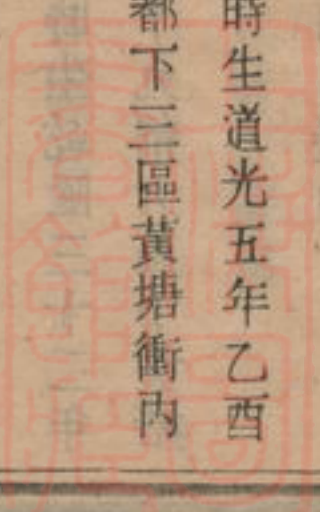 時生道光五年乙酉
都下三區黃塘衝內